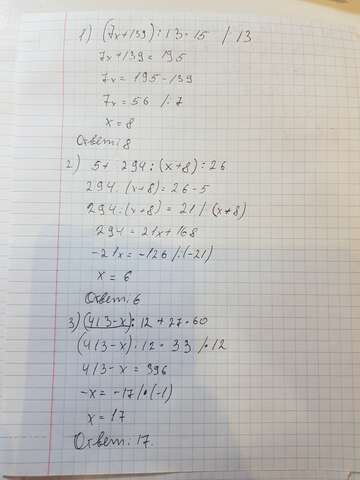 1) (7x+139):13=15 /·13
7x+139=195
7x=195-139
7x=56 /:7
x=8
Ответ: 8
2) 5+ 294:(x+8)=26
294:(x+8)=26-5
294:(x+8)=21 /·(x+8)
294=21x+168
-21x=-126 /:(-21)
x=6
Ответ: 6
3) (413-x):12+27=60
(413-x):12=33 /·12
413-x=396
-x=-17 /·(-1)
x=17
Ответ: 17.